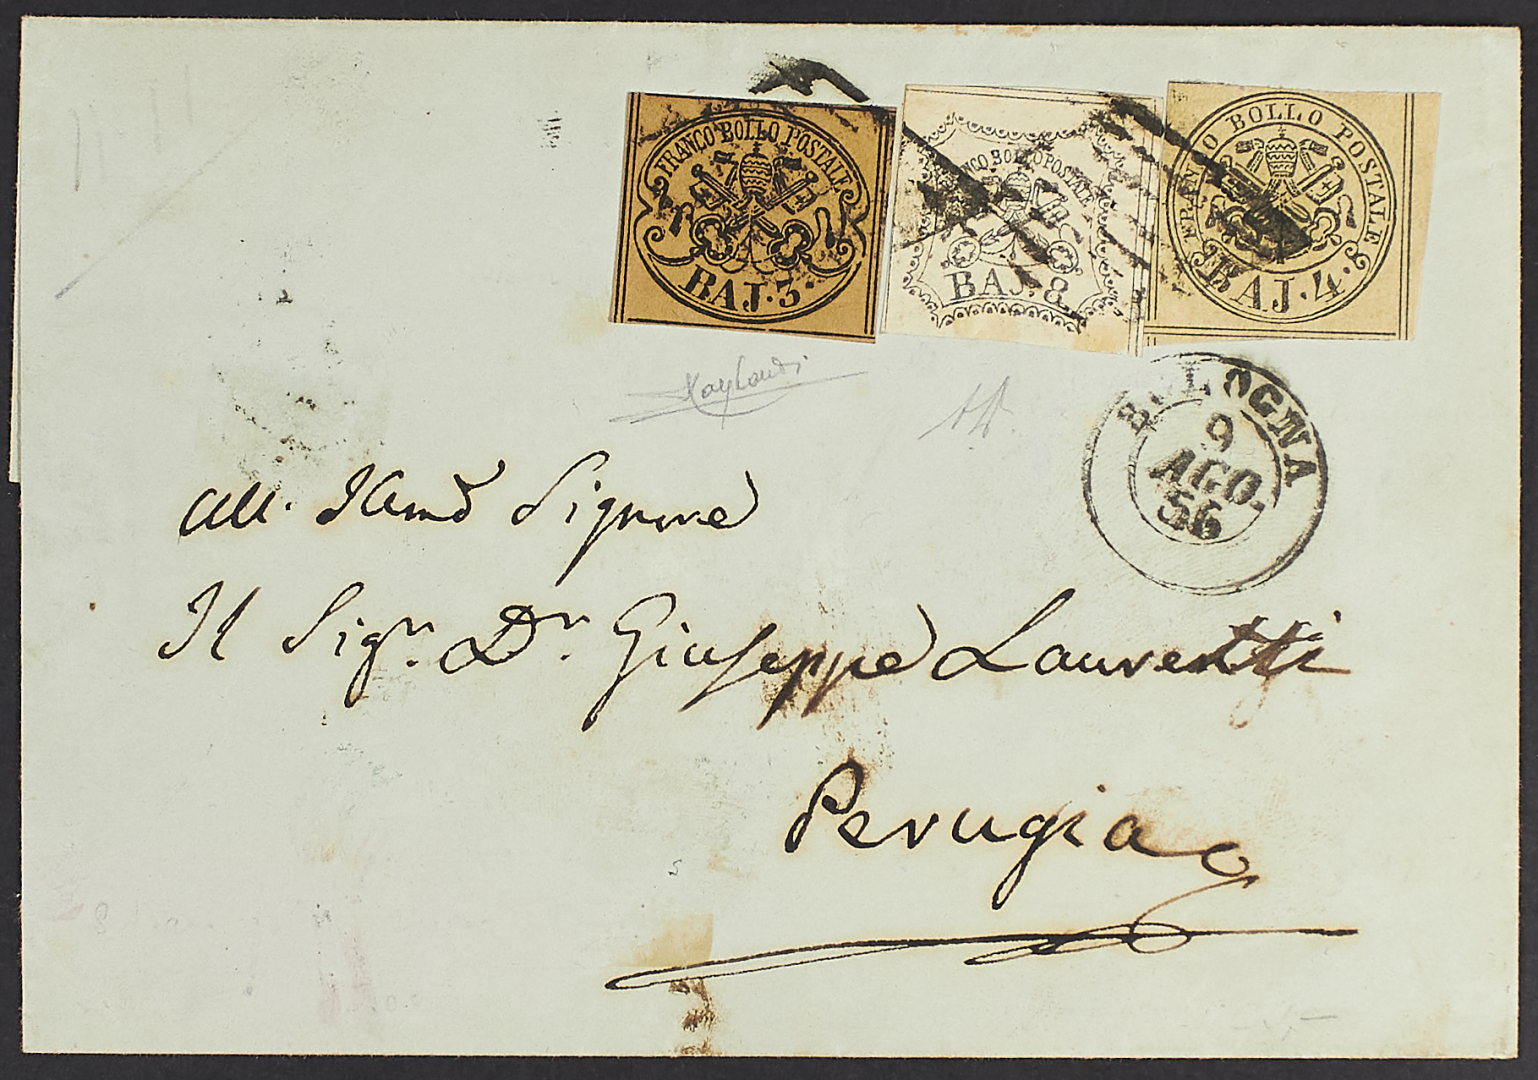 FRANCO BOLLO POSTALE
BAJ. 3.
FRANCO BOLLO POSTALE
BAJ. 8.
FRANCO BOLLO POSTALE
BAJ. 4.
BOLOGNA
9
AGO.
56
All. Illmo Signore
Il Sigr. Dr. Giuseppe Laurenti
Perugia